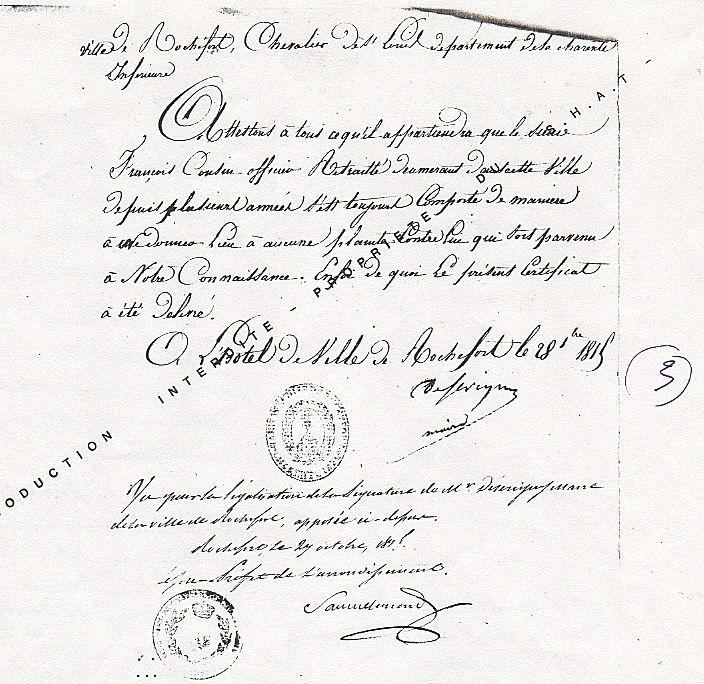 Ville de Rochefort, Chevalier de St Louis departement de la charente
Inferieure
Attestons à tous ce qu'il appartiendra que le
François Cousin officier Retraitté demeurant dans cette Ville
depuis plusieurs années s'est toujours Comporté de manière
à ne donner Lieu à aucune plainte Contre Lui qui soit parvenu
à Notre Connaissance. En foi de quoi Le présent Certificat
à été delivré.
A L'hotel de Ville de Rochefort le 28 8bre 1815
Desevigny
maire
3
ODUCTION INTERDITE - PROPRIETE DU S.H.A.T.
Vu pour la légalisation de la Signature de Mr Desevigny maire
de la ville de Rochefort, apposée ci-dessus.
Rochefort, le 29 octobre, 1815.
Le Sous-Préfet de l'arrondissement.